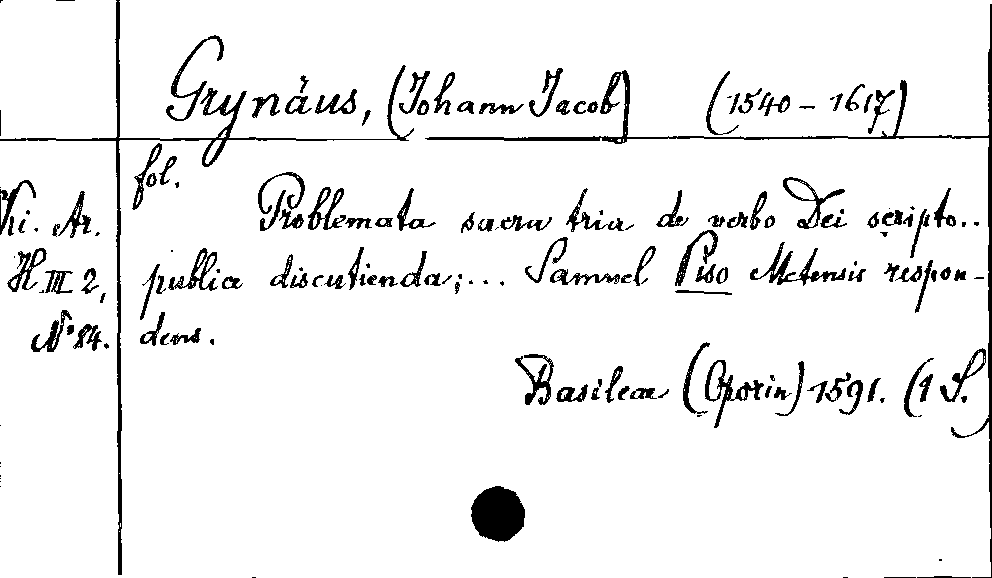 Grynäus, (Johann Jacob) (1540-1617)
fol.
Ki. Ar. Problemata sacra tria de verbo Dei scripto..
H III 2, publice discutienda;... Samuel Piso Metensis respon-
No 84. dens.
Basileae (Oporin) 1591. (1 S.)